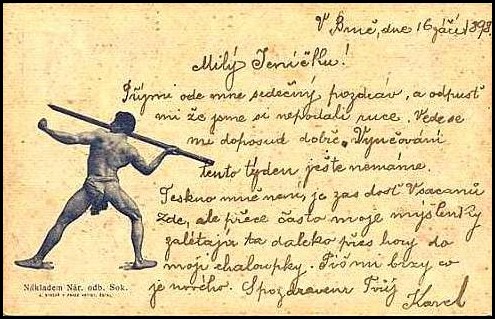 V Brně, dne 16 září 1898.
Milý Jeníčku!
Přijmi ode mne srdečný pozdrav, a odpusť
mi že jsme si nepodali ruce. Vede se
mi doposud dobře. Vyučování
tento týden ješte nemáme.
Teskno mně není, je zas dosť Vsacanů
zde, ale přece často moje myšlenky
zalétají ta daleko přes hory do
moji chaloupky. Piš mi brzy co
je nového. S pozdravem Tvůj
Karel
Nákladem Nár. odb. Sok.